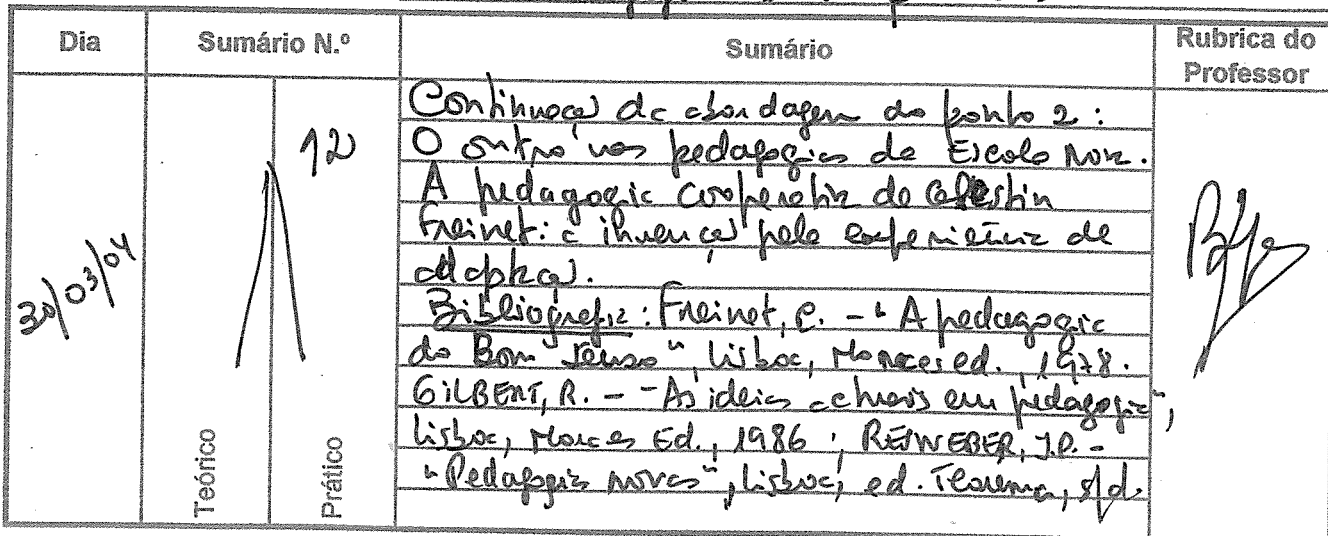 Dia
Sumário N.º
Sumário
Rubrica do
Professor
30/03/04
12
Teórico
Prático
Continuação da abordagem do ponto 2:
O outro nas pedagogias da Escola Nova.
A pedagogia cooperativa de Celestin
Freinet: a pela experiência de
Bibliografia: Freinet, C. - "A pedagogia
do Bom Senso", Lisboa, Moraes ed., 1978.
GILBERT, R. - "As ideias actuais em pedagogia",
Lisboa, Moraes Ed., 1986; RESWEBER, J.P. -
"Pedagogias novas", Lisboa, ed. Teorema, s/d.